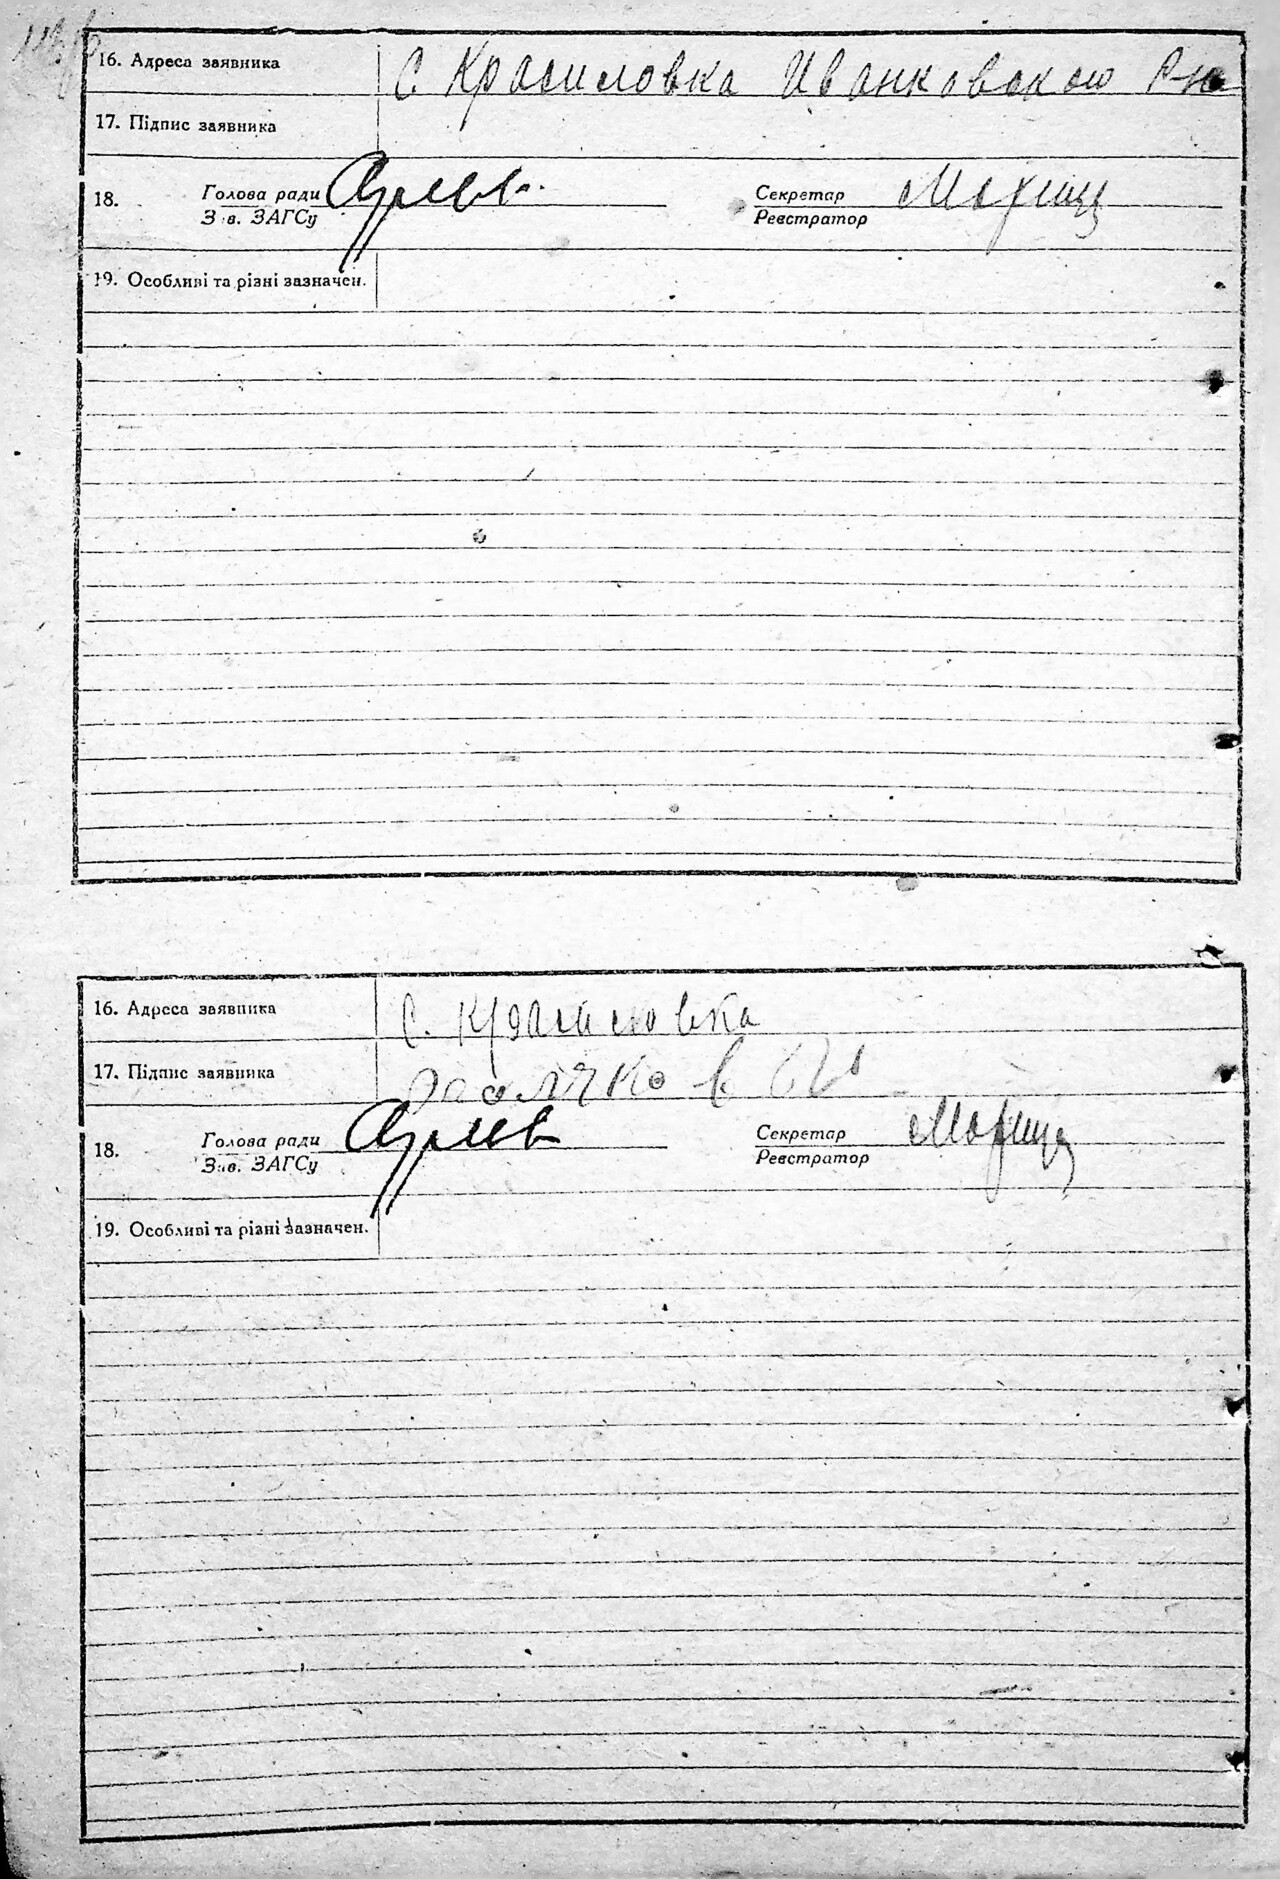 16. Адреса заявника С. Красиловка Иванковского Р-на
17. Підпис заявника
18. Голова ради Секретар
Зав. ЗАГСу Реєстратор
19. Особливі та різні зазначен.
16. Адреса заявника С. Красиловка
17. Підпис заявника
18. Голова ради Секретар
Зав. ЗАГСу Реєстратор
19. Особливі та різні зазначен.